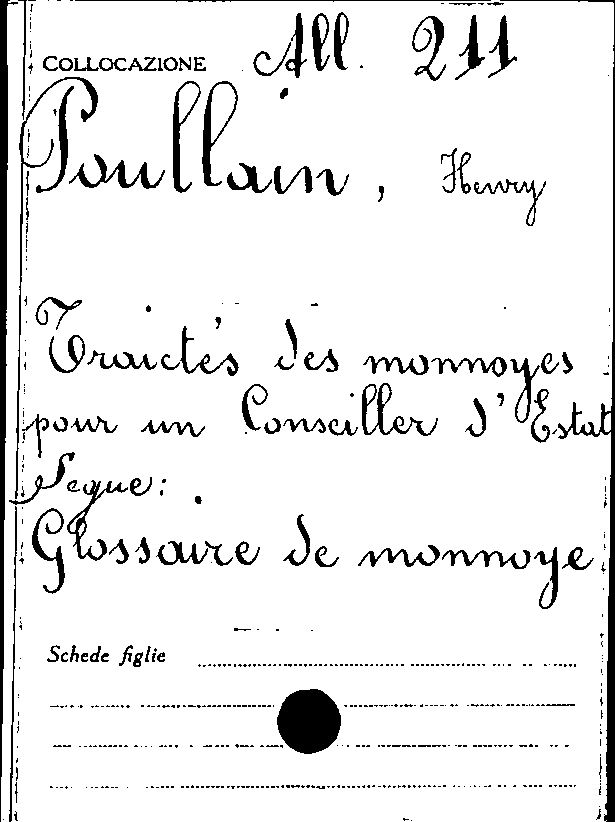 COLLOCAZIONE All. 211
Poullain, Henry
Traictés des monnoyes
pour un Conseiller d'Estat
Segue:
Glossaire de monnoye
Schede figlie